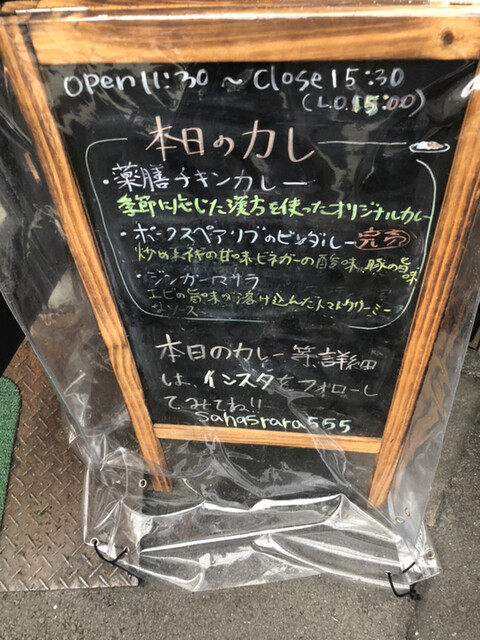 open 11:30 ～ close 15:30
(L.O.15:00)
本日のカレー
・薬膳チキンカレー
季節に応じた漢方を使ったオリジナルカレー
・ポークスペアリブのビンダルー 完売
炒め玉ねぎの甘味、ビネガーの酸味、豚の旨味
・ジンガーマサラ
エビの旨味が溶け込んだトマトクリーミー
なソース
本日のカレー等、詳細
は、インスタをフォローし
てみてね!!
sahasrara555